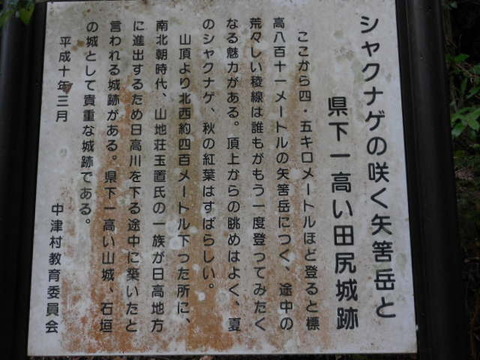 シャクナゲの咲く矢筈岳と
県下一高い田尻城跡
ここから四・五キロメートルほど登ると標
高八百十一メートルの矢筈岳につく、途中の
荒々しい稜線は誰もがもう一度登ってみたく
なる魅力がある。頂上からの眺めはよく、夏
のシャクナゲ、秋の紅葉はすばらしい。
山頂より北西約四百メートル下った所に、
南北朝時代、山地荘玉置氏の一族が日高地方
に進出するため日高川を下る途中に築いたと
言われる城跡がある。県下一高い山城、石垣
の城として貴重な城跡である。
平成十年三月
中津村教育委員会